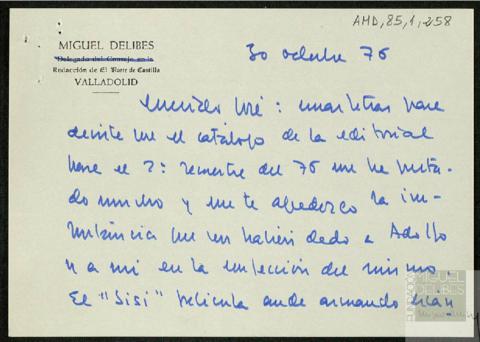 AMD,85,1,258
MIGUEL DELIBES
Delegado del Consejo en la
Redacción de El Norte de Castilla
VALLADOLID
30 octubre 76
Querido José: unas letras para
decirte que el catálogo de la editorial
para el 2º semestre del 76 me ha gusta-
do mucho y que te agradezco la im-
portancia que en habéis dado a Adolfo
y a mi en la confección del mismo.
El "Sisí" película anda armando
FUNDACIÓN
MIGUEL
DELIBES